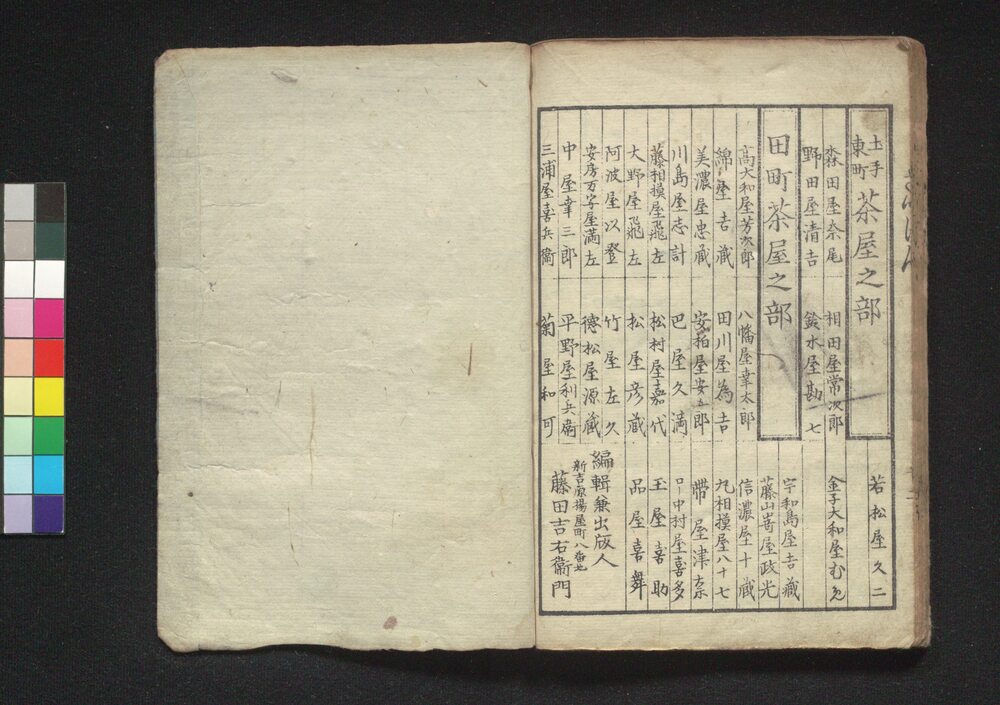 土手
東町
茶屋之部
若松屋久二
森田屋奈尾
相田屋常次郎
金子大和屋むめ
野田屋清吉
鈴木屋勘七
田町茶屋之部
宇和島屋吉蔵
藤山嵜屋政光
高大和屋芳次郎
八幡屋幸太郎
信濃屋十蔵
綿屋吉蔵
田川屋為吉
九相摸屋八十七
美濃屋忠蔵
安指屋安五郎
帯屋津奈
川島屋志計
巴屋久満
ロ一中村屋喜多
藤相摸屋飛左
松村屋嘉代
玉屋喜助
大野屋飛左
松屋彦蔵
品屋喜舞
阿波屋以登
竹屋左久
安房万字屋満左
徳松屋源蔵
中屋幸三郎
平野屋利兵衛
三浦屋喜兵衛
菊屋和可
編輯兼出版人
新吉原揚屋町八番地
藤田吉右衞門